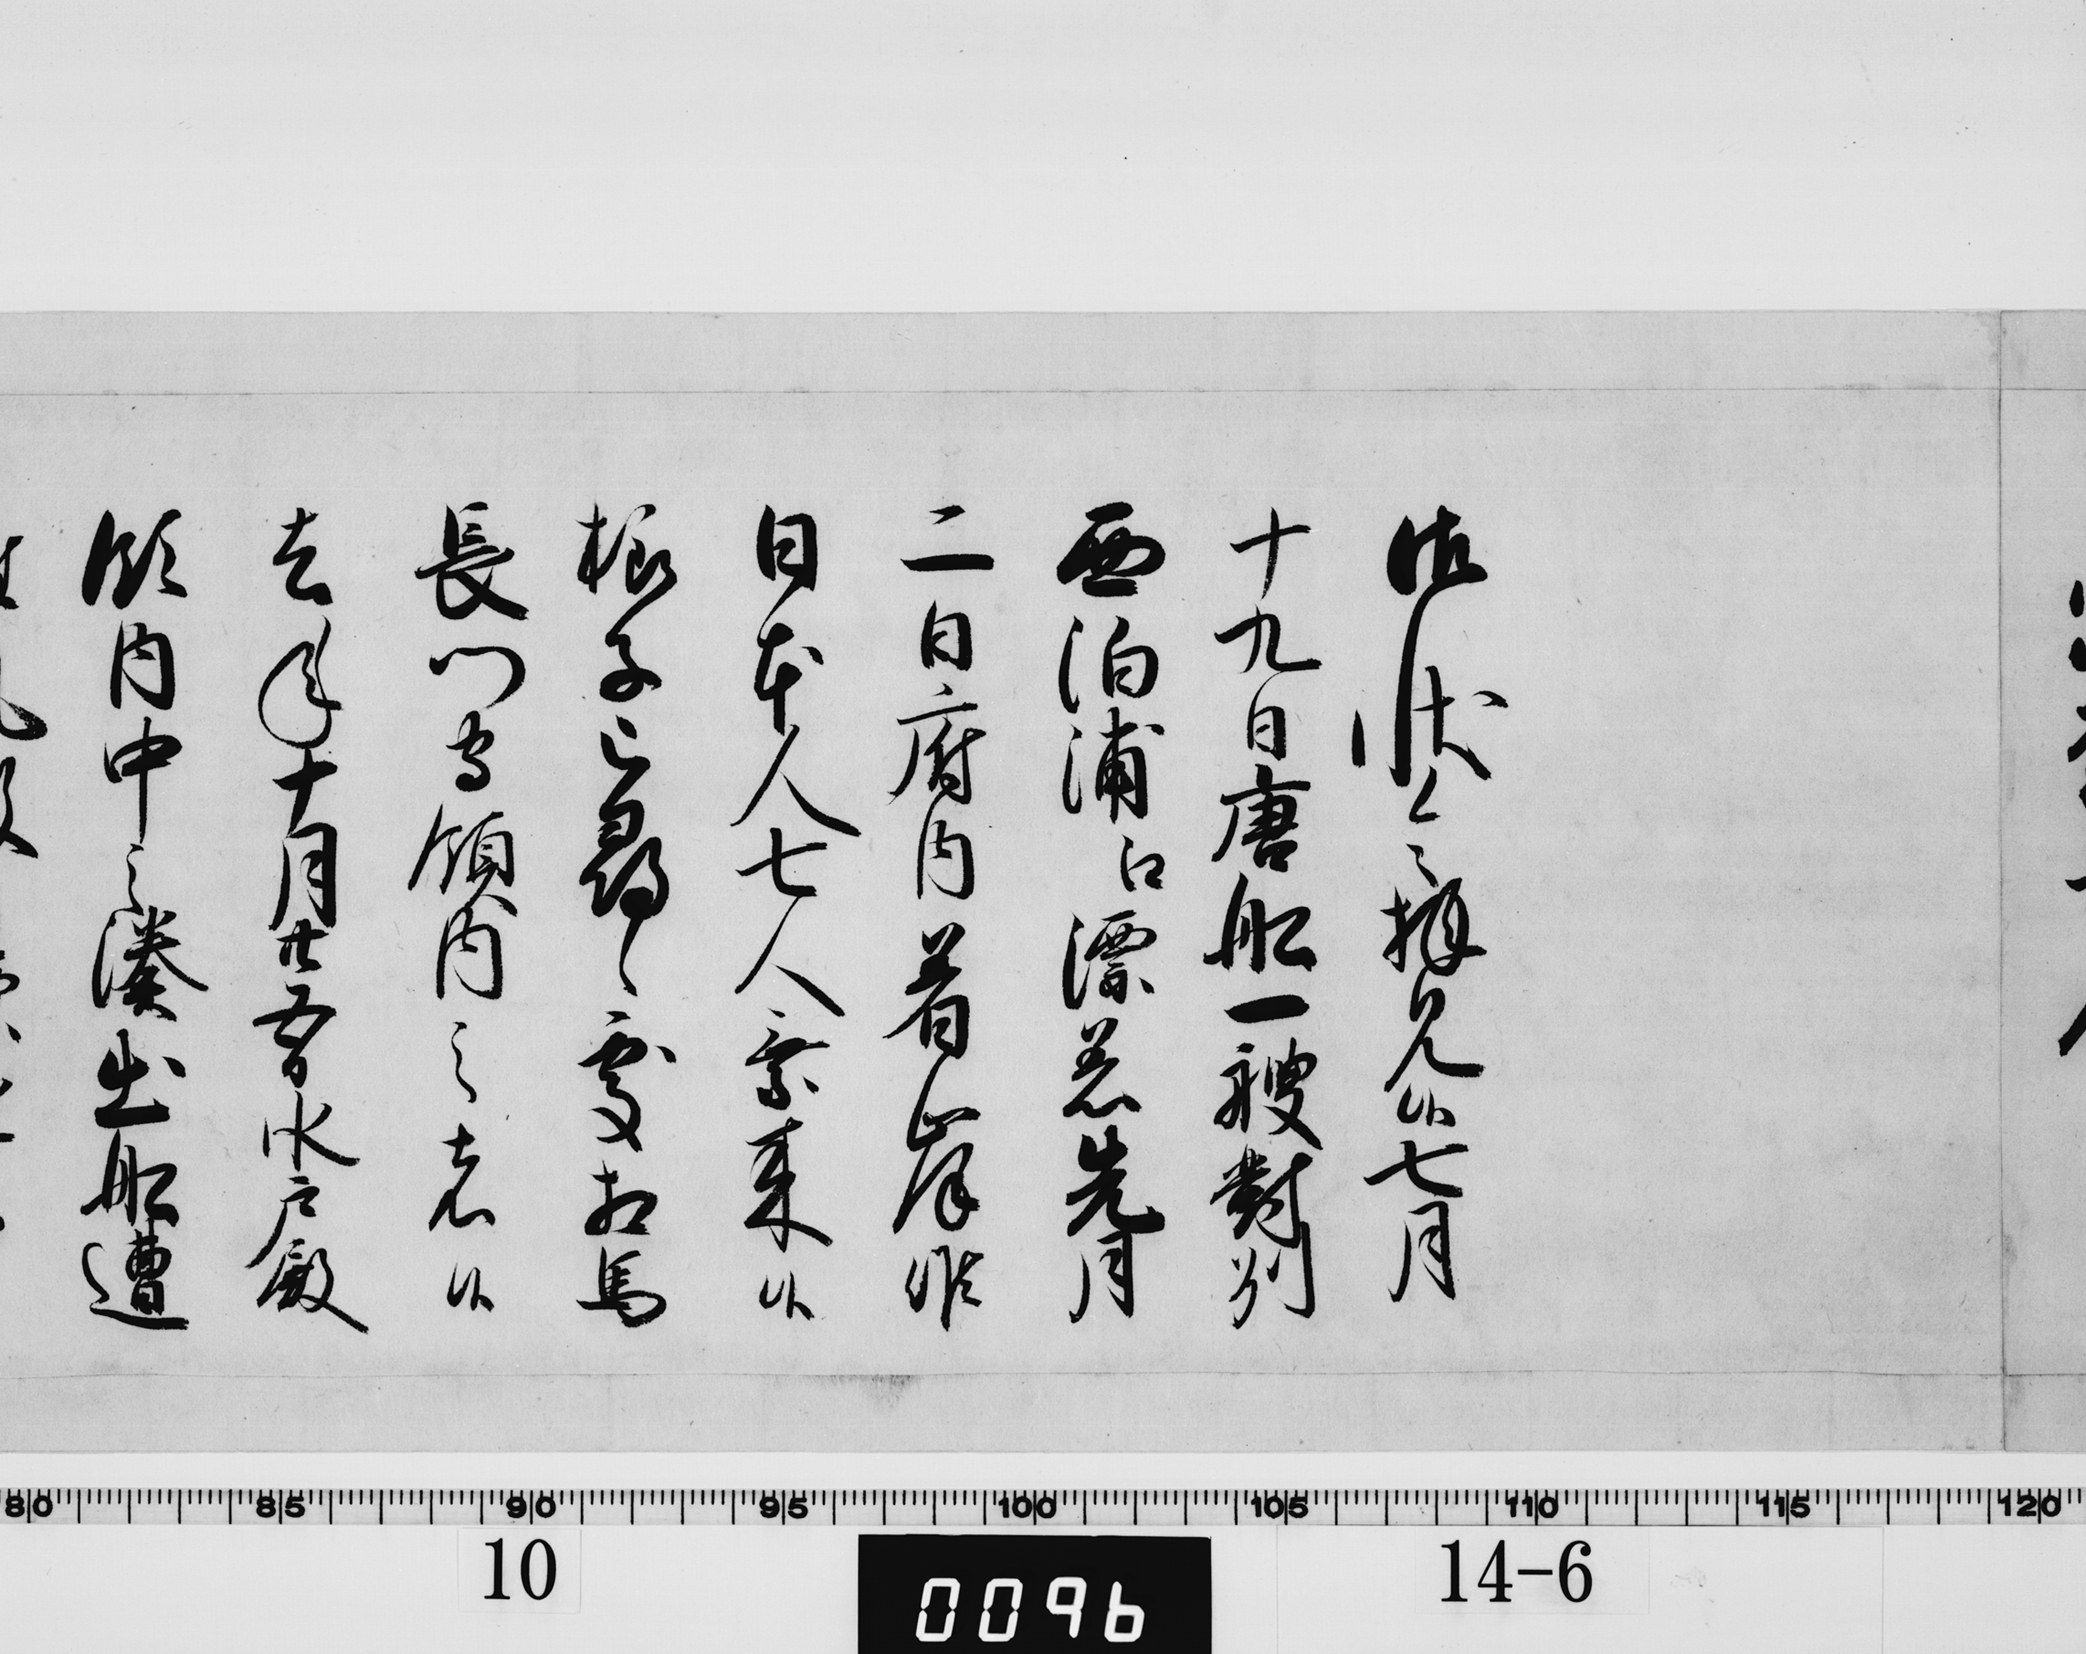 佐状令拝見候七月
十九日唐船一艘對州
西泊浦江漂着先月
二日府内着岸候
日本人七人乗来候
様子被尋候處相馬
長門守領内之者候
去年十月廿五日水戸殿
領内中之湊出船遭
80 85 90 95 100 105 110 115 120
10 0096 14-6